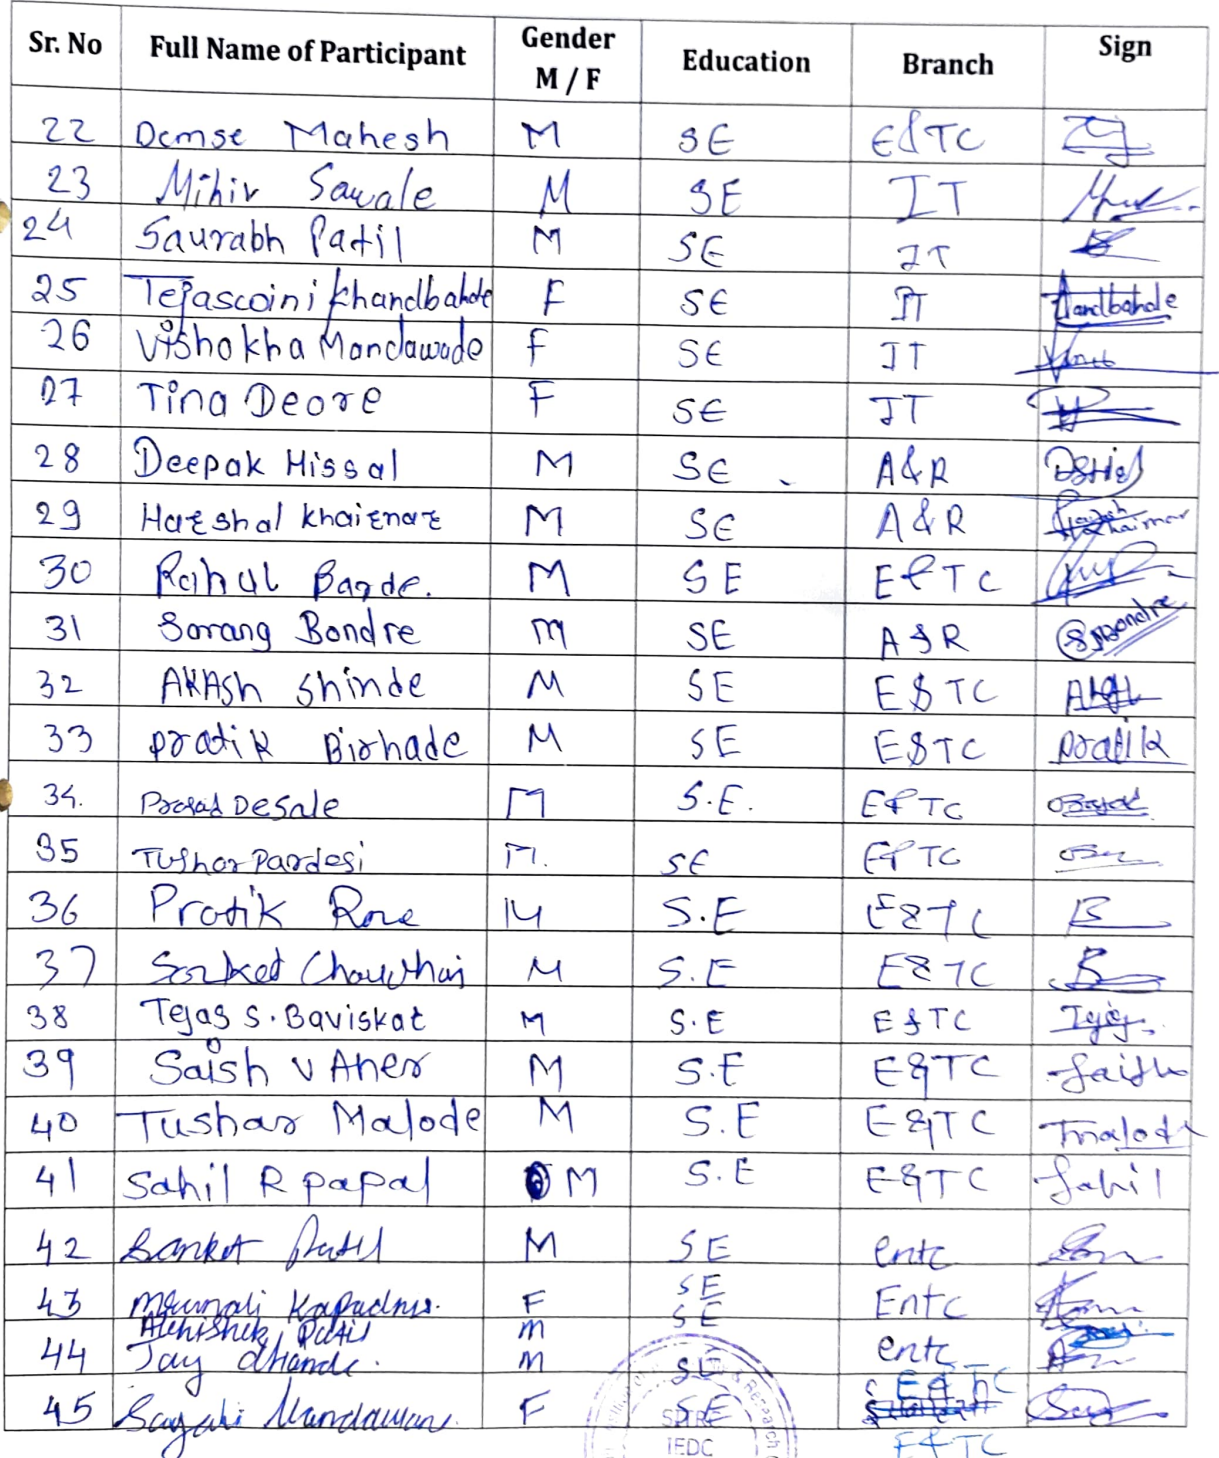 Sr. No Full Name of Participant Gender M / F Education Branch Sign
22 Demse Mahesh M SE E&TC
23 Mihir Sawale M SE IT
24 Saurabh Patil M SE IT
25 Tejascoini Khandbahde F SE IT Handbahde
26 Vishakha Mandawade F SE IT
27 Tina Deore F SE IT
28 Deepak Hissal M SE A&R
29 Harshal Khairnar M SE A&R
30 Rahul Barde. M SE E&TC
31 Sarang Bondre M SE A&R Bondre
32 AKAsh Shinde M SE E&TC
33 pratik Birhade M SE E&TC pratik
34. Prasad Desale M S.E. E&TC
35 Tushar Pardesi M. SE E&TC
36 Pratik Rane M S.E E&TC
37 Sanket Chouvhan M S.E E&TC
38 Tejas S. Baviskar M S.E E&TC Tejas
39 Saish V Aher M S.E E&TC Saish
40 Tushar Malode M S.E E&TC Tmalode
41 Sahil R papal M S.E E&TC Sahil
42 Sanket Patil M SE entc
43 Mrunali Kapadnis. F SE Entc
Abhishek Patil m SE
44 Jay dhande. m SE entc
E&TC
45 Sayali Mandawane. F SE
E&TC
SITRC
IEDC
& Research